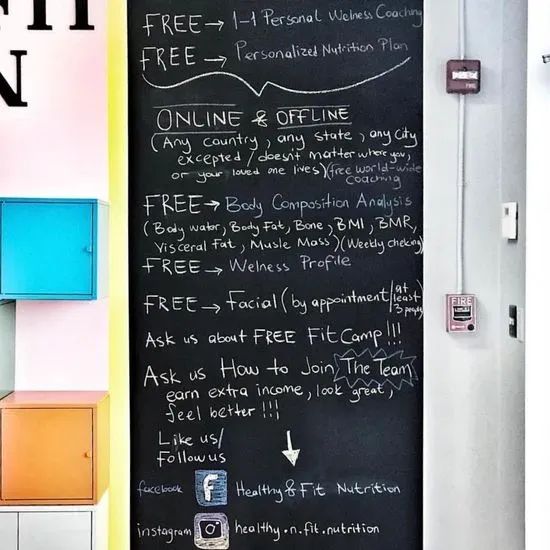 FIT
N
FREE → 1-1 Personal Welness Coaching
FREE → Personalized Nutrition Plan
ONLINE & OFFLINE
(Any country, any state, any city
excepted / doesn't matter where you,
or your loved one lives) (free world-wide
coaching
FREE → Body Composition Analysis
(Body water, Body Fat, Bone, BMI, BMR,
Visceral Fat, Musle Mass) (Weekly cheking)
FREE → Welness Profile
FREE → Facial (by appointment / at
least
3 people
Ask us about FREE Fit Camp!!!
Ask us How to Join The Team
earn extra income, look great,
feel better!!!
Like us/
Follow us
facebook f Healthy & Fit Nutrition
instagram healthy.n.fit.nutrition
FIRE
FIRE